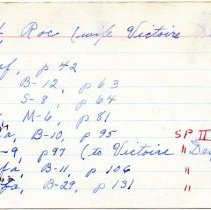 Roc (wife Victoire
p 42
B-12, p 63
S-8, p 64
M-6, p 81
B-10, p 95 SP II
-9, p97 (to Victoire " De
B-11, p 106 "
B-29, p 131 "